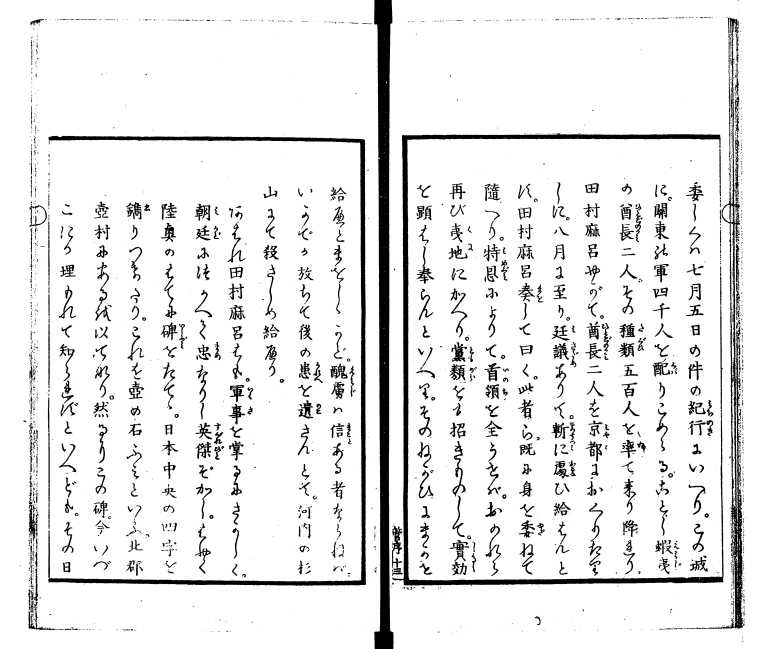 委しくは七月五日の件の紀行にいへり。この城
に。関東の軍四千人を配りこめらる。ことし蝦夷
の酋長二人。その種類五百人を率て来り降れり。
田村麻呂やがて。酋長二人を京都におくりたり
しに。八月に至り。廷議ありて。斬に處ひ給はんと
す。田村麻呂奏して曰く。此者ら。既に身を委ねて
隨へり。特恩によりて。首領を全うせば。おのれら
再び夷地にかへり。黨類をも招きものして。實効
を顕はし奉らんといへり。そのねがひにまかせ
給へとまをししかど。醜虜は信ある者ならねば。
いかでか放ちて後の患を遺さんとて。河内の杉
山にて殺さしめ給へり。
あはれ田村麻呂はも。軍事を掌るにさかしく。
朝廷につかへて忠なりし英傑ぞかし。はやく
陸奥のはてに碑をたてゝ。日本中央の四字を
鐫りつけたり。これを壺の石ふみといふ。北郡
壺村にあるを以てなり。然るにこの碑。今いづ
こにか埋もれて知られずといへども。その日